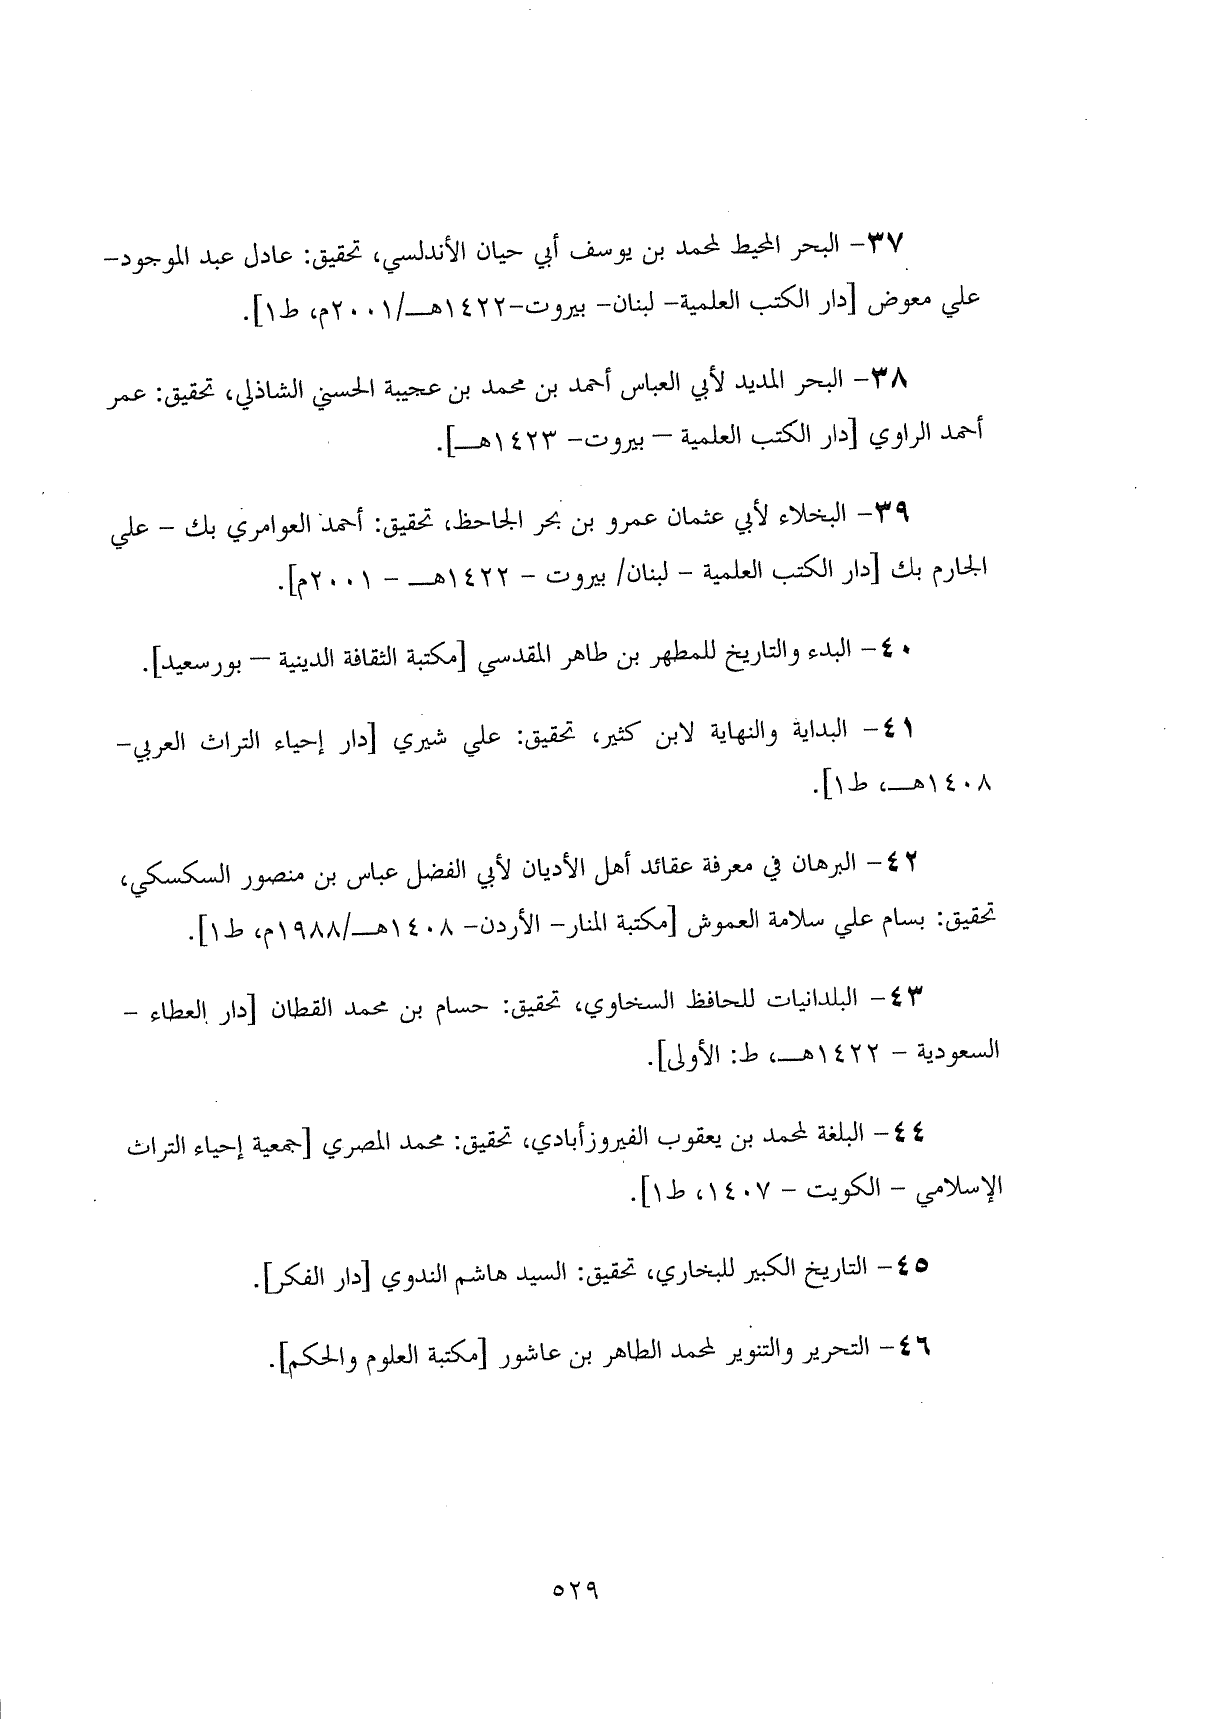 ٣٧- البحر المحيط لمحمد بن يوسف أبي حيان الأندلسي، تحقيق: عادل عبد الموجود-
علي معوض [دار الكتب العلمية- لبنان- بيروت-١٤٢٢هـ/٢٠٠١م، ط١].
٣٨- البحر المديد لأبي العباس أحمد بن محمد بن عجيبة الحسني الشاذلي، تحقيق: عمر
أحمد الراوي [دار الكتب العلمية – بيروت- ١٤٢٣هـ].
٣٩- البخلاء لأبي عثمان عمرو بن بحر الجاحظ، تحقيق: أحمد العوامري بك – علي
الجارم بك [دار الكتب العلمية – لبنان/ بيروت – ١٤٢٢هـ – ٢٠٠١م].
٤٠- البدء والتاريخ للمطهر بن طاهر المقدسي [مكتبة الثقافة الدينية – بورسعيد].
٤١- البداية والنهاية لابن كثير، تحقيق: علي شيري [دار إحياء التراث العربي-
١٤٠٨هـ، ط١].
٤٢- البرهان في معرفة عقائد أهل الأديان لأبي الفضل عباس بن منصور السكسكي،
تحقيق: بسام علي سلامة العموش [مكتبة المنار- الأردن- ١٤٠٨هـ/١٩٨٨م، ط١].
٤٣- البلدانيات للحافظ السخاوي، تحقيق: حسام بن محمد القطان [دار العطاء –
السعودية – ١٤٢٢هـ، ط: الأولى].
٤٤- البلغة لمحمد بن يعقوب الفيروزأبادي، تحقيق: محمد المصري [جمعية إحياء التراث
الإسلامي – الكويت – ١٤٠٧، ط١].
٤٥- التاريخ الكبير للبخاري، تحقيق: السيد هاشم الندوي [دار الفكر].
٤٦- التحرير والتنوير لمحمد الطاهر بن عاشور [مكتبة العلوم والحكم].
٥٢٩